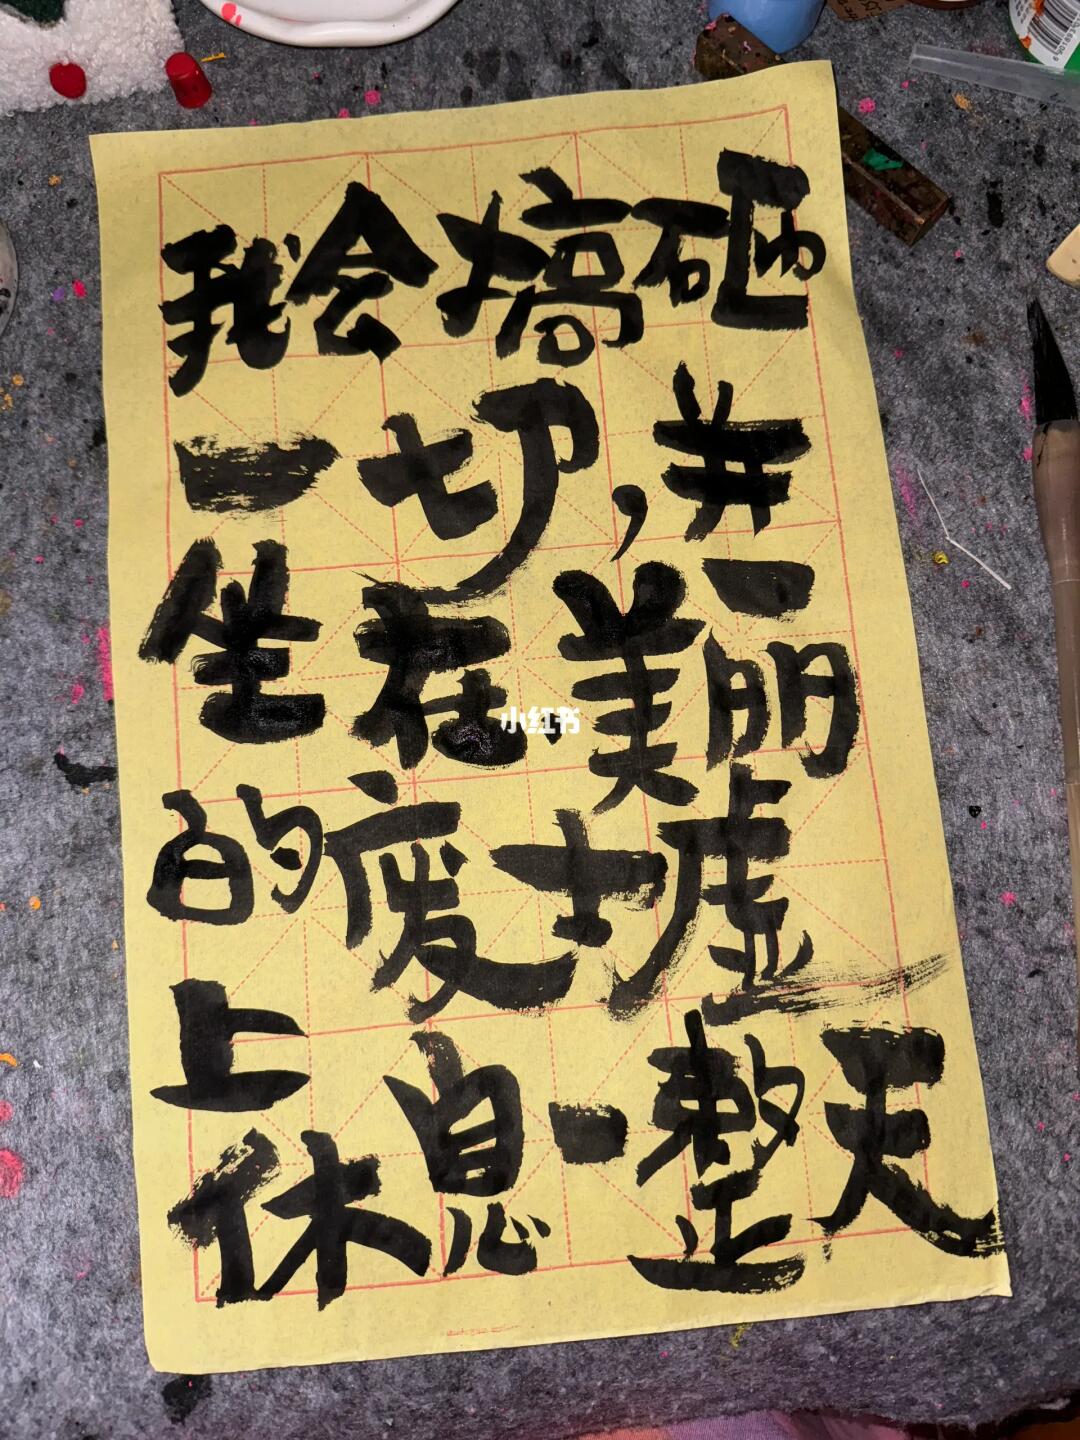 我会搞砸
一切，并
坐在美丽
的废墟
上
休息一整天
小红书